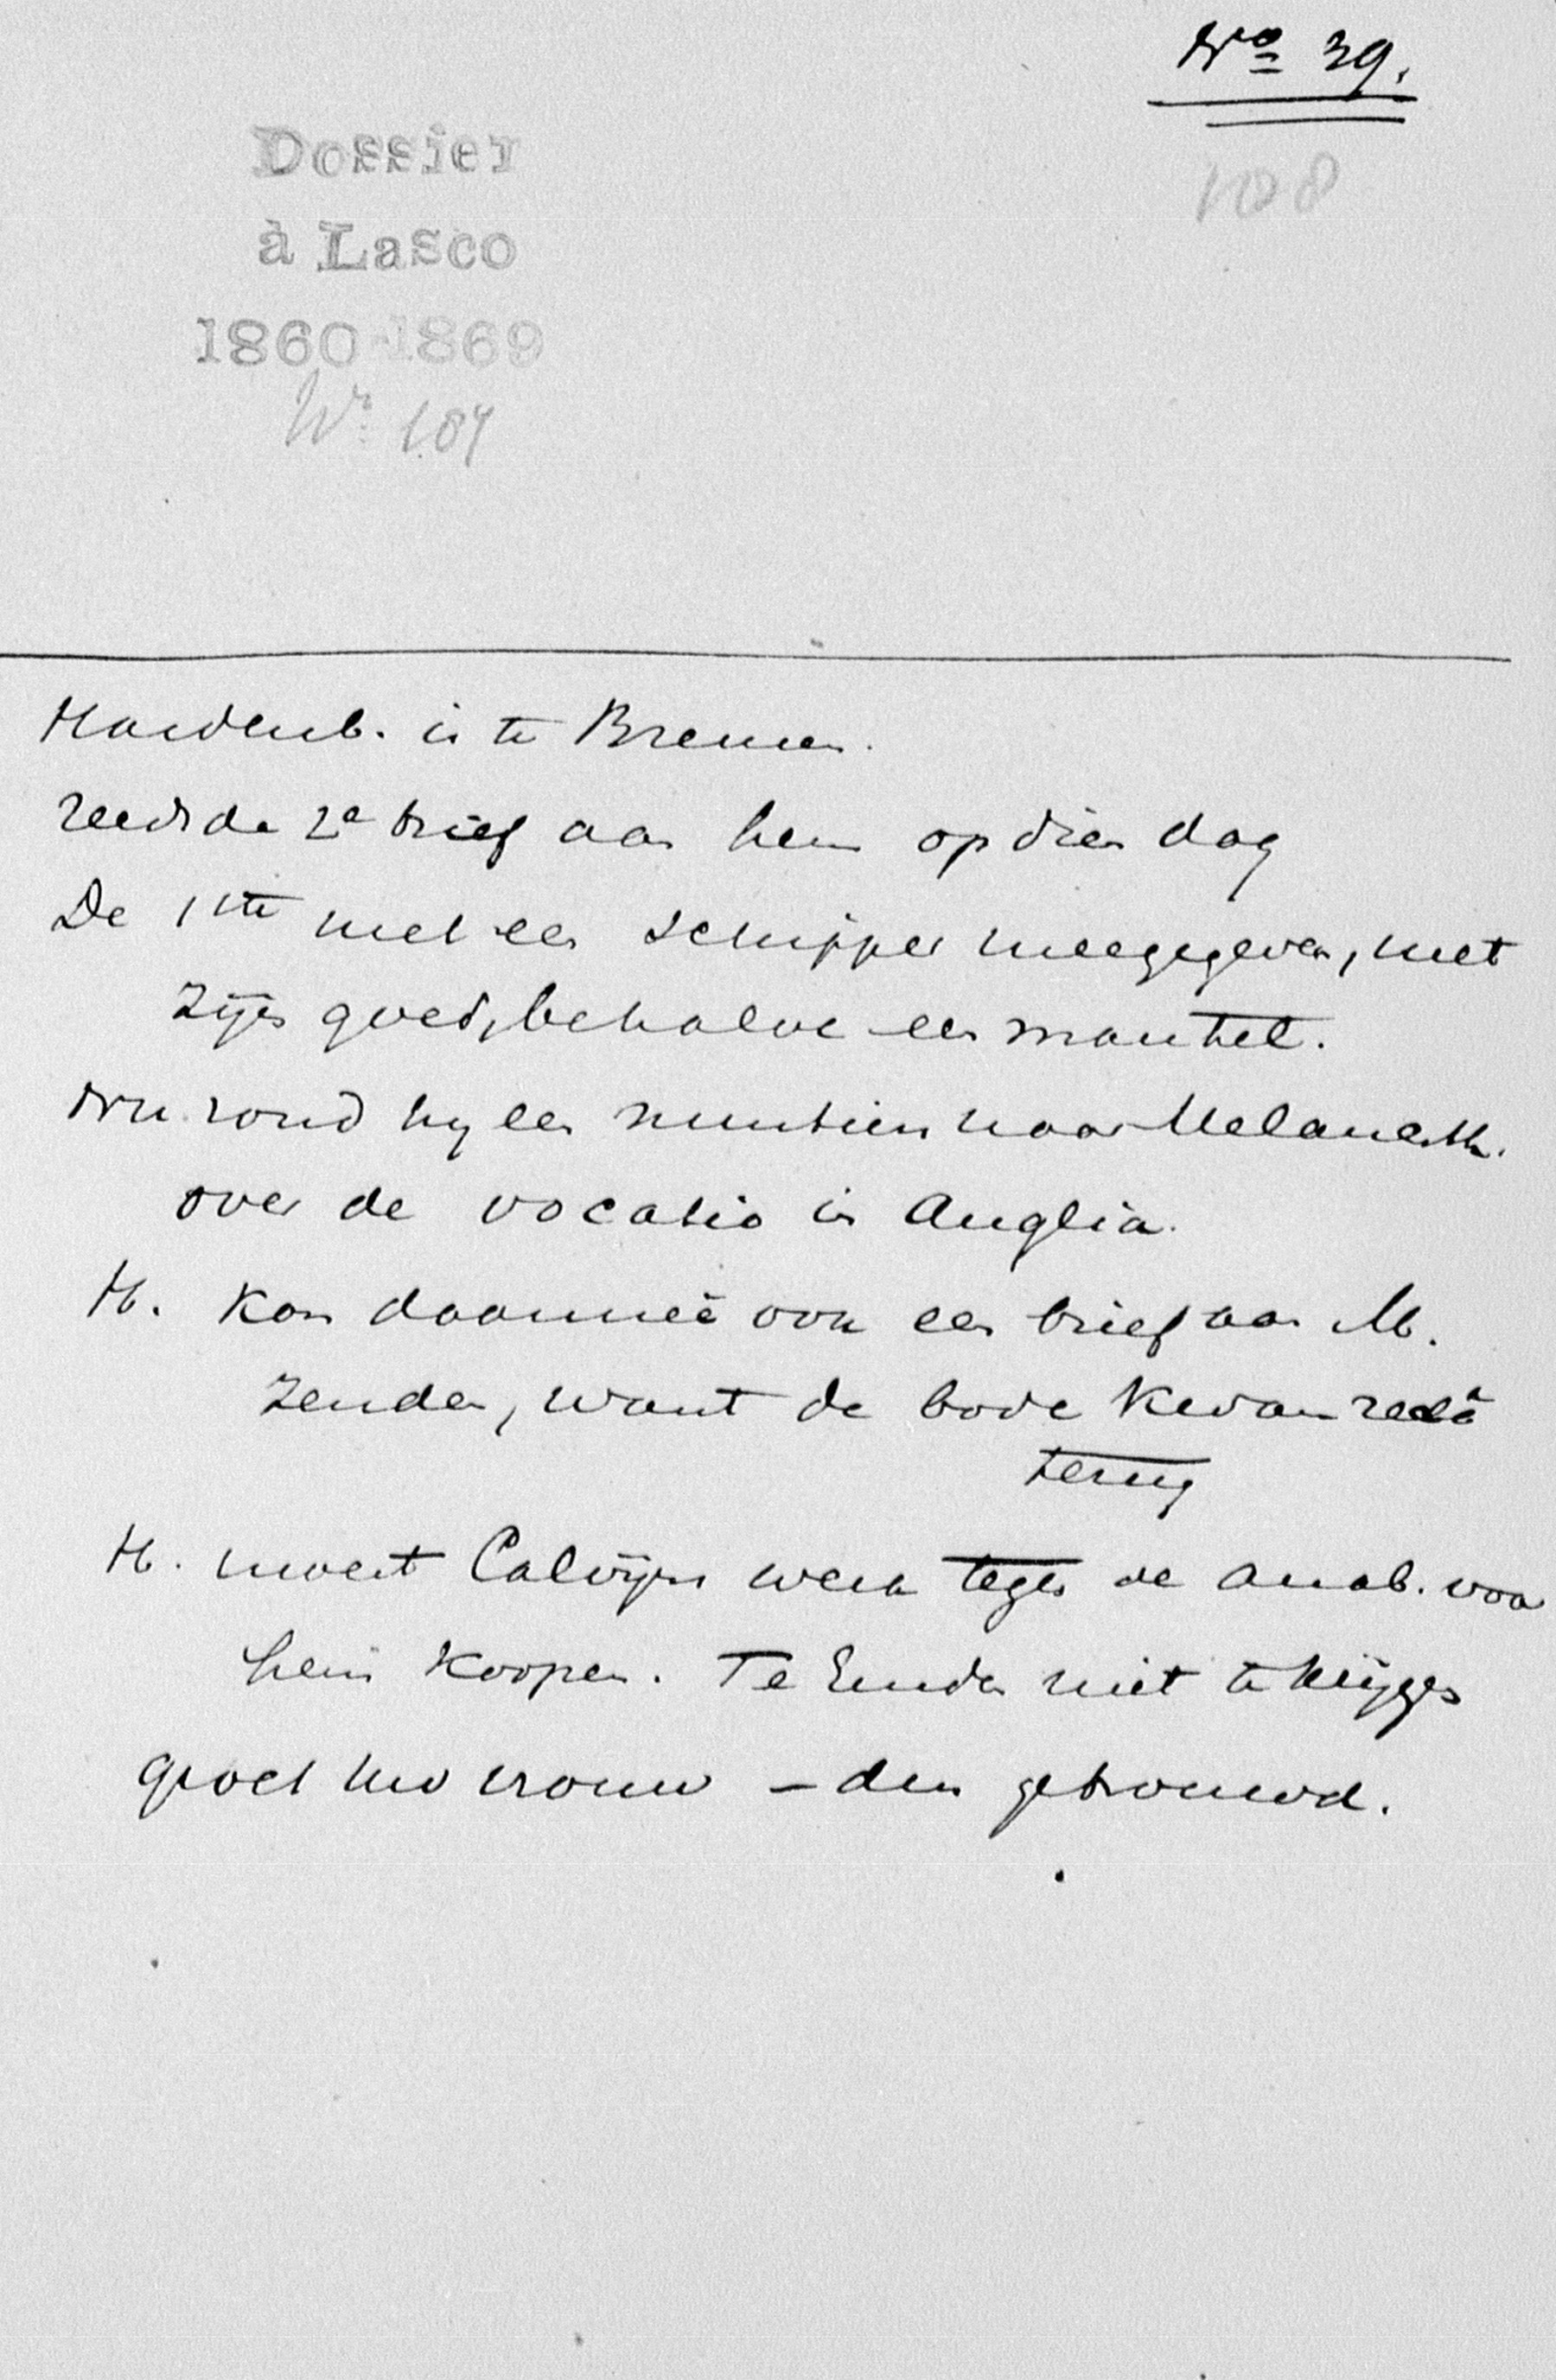 No 39.
108
Dossier
à Lasco
1860-1869
No 104
Hardenb. is te Bremen.
reeds de 2e brief aan hem op dien dag
De 1ste met een schipper meegegeven, met
zijn goed, behalve een mantel.
Nu zond hij een nuntius naar Melancth.
over de vocatio in Anglia.
H. kon daarmeê ook een brief aan M.
zenden, want de bode kwam
terug
H. moest Calvijns werk tegen de anab. voor
hem koopen. Te Emden niet te krijgen
groet uw vrouw – den getrouwd.